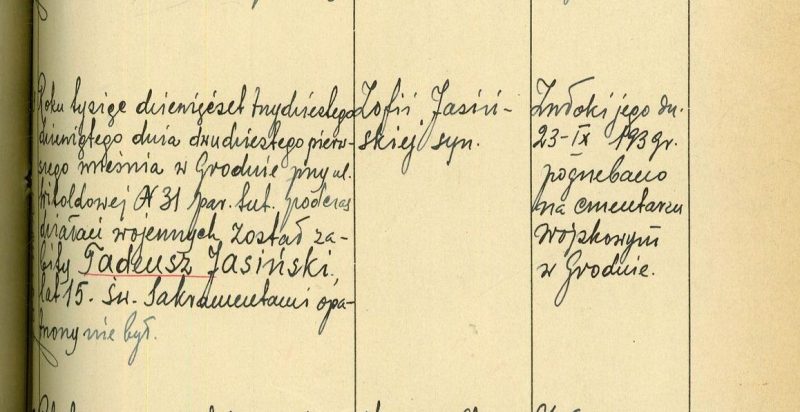 Roku tysiąc dziewięćset trzydziestego
dziewiątego dnia dwudziestego pierw-
szego września w Grodnie przy ul.
Witoldowej N 31 par. tut. podczas
działań wojennych został za-
bity Tadeusz Jasiński,
lat 15. Św. Sakramentami opa-
trzony nie był.
Zofii Jasiń-
skiej syn.
Zwłoki jego dn.
23-IX 1939r.
pogrzebano
na cmentarzu
wojskowym
w Grodnie.